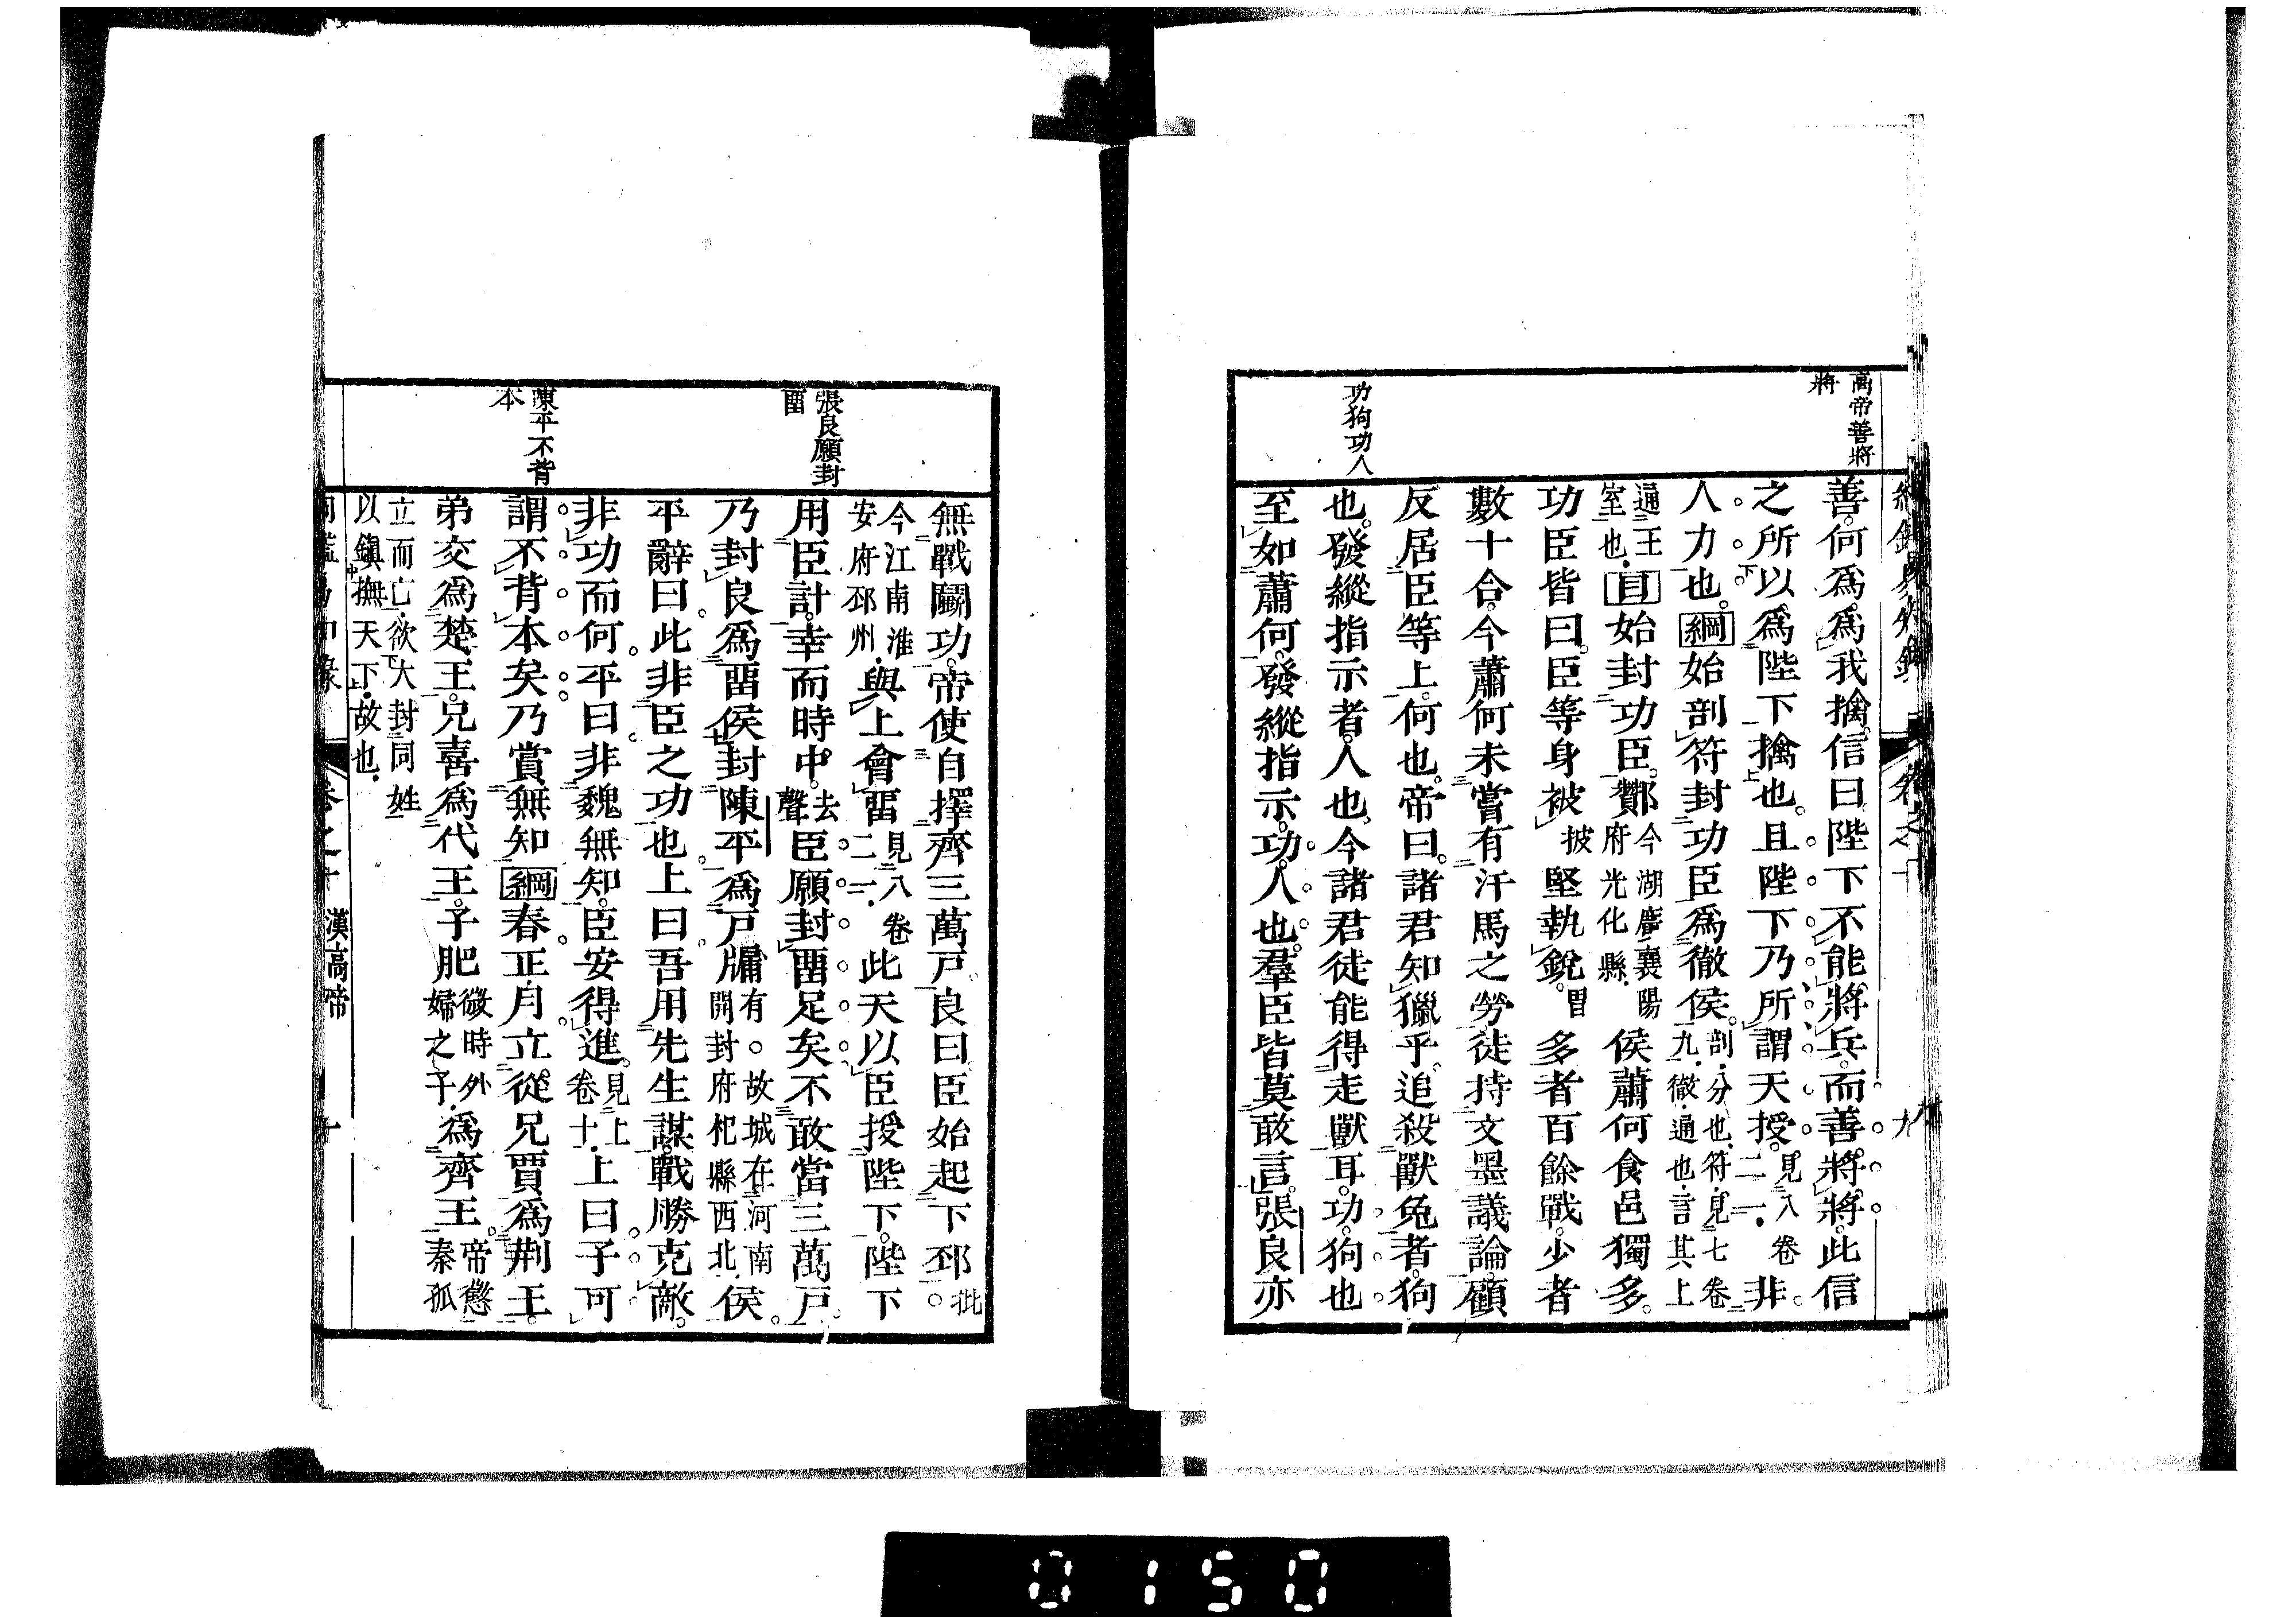 高帝善將
將
功狗功人
善。何爲。爲我擒。信曰。陛下不能將兵。而善將將。此信
之所以爲陛下擒也。且陛下乃所謂天授。見八卷二一。非
人力也。綱始剖符封功臣爲徹侯。剖。分也。符。見七卷九。徹。通也。言其上
通王室也。目始封功臣。酇今湖廣襄陽府光化縣。侯蕭何食邑獨多。
功臣皆曰。臣等身被披堅執銳。多者百餘戰。少者
數十合。今蕭何未嘗有汗馬之勞。徒持文墨議論。顧
反居臣等上。何也。帝曰。諸君知獵乎。追殺獸兔者。狗
也。發縱指示者。人也。今諸君徒能得走獸耳。功。狗也
至如蕭何。發縱指示。功。人也。羣臣皆莫敢言。張良亦
張良願封
畱
陳平不背
本
無戰鬭功。帝使自擇齊三萬戸。良曰。臣始起下邳批。
今江南淮安府邳州。與上會畱見八卷二一。此天以臣授陛下。陛下
用臣計。幸而時中。去聲臣願封畱足矣。不敢當三萬戸。
乃封良爲畱侯。封陳平爲戸牖有。故城在河南開封府杞縣西北。侯。
平辭曰。此非臣之功也。上曰。吾用先生謀。戰勝克敵。
非功而何。平曰。非魏無知。臣安得進。見上卷十。上曰。子可
謂不背本矣。乃賞無知。綱春正月。立從兄賈爲荆王。
弟交爲楚王。兄喜爲代王。子肥微時外婦之子。爲齊王。帝懲秦孤
立而亡。欲大封同姓
以鎭撫天下。故也。
漢高帝
0150